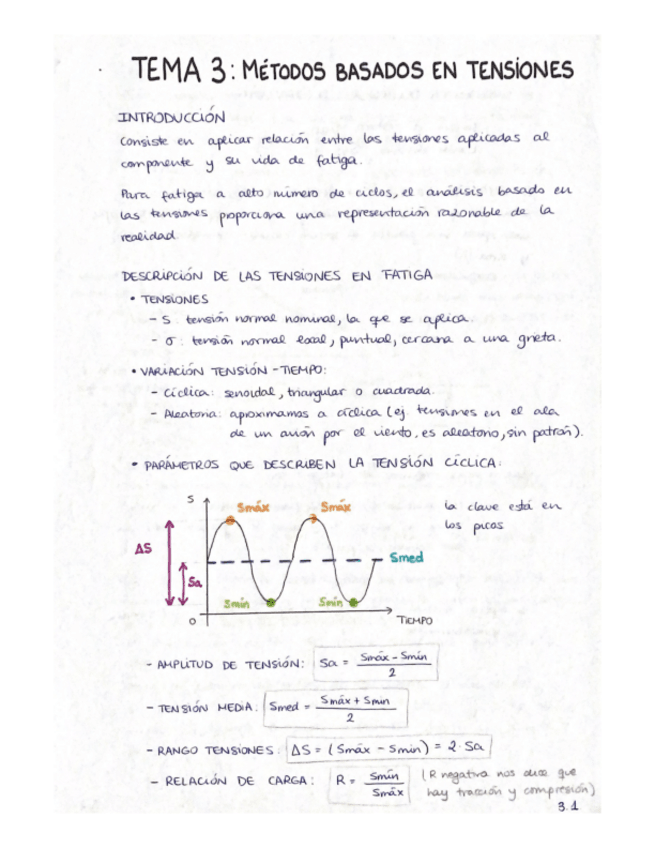 TEMA 3: MÉTODOS BASADOS EN TENSIONES
INTRODUCCIÓN
Consiste en aplicar relación entre las tensiones aplicadas al
componente y su vida de fatiga.
Para fatiga a alto número de ciclos, el análisis basado en
las tensiones proporciona una representación razonable de la
realidad.
DESCRIPCIÓN DE LAS TENSIONES EN FATIGA
• TENSIONES
- S: tensión normal nominal, la que se aplica.
- σ: tensión normal local, puntual, cercana a una grieta.
• VARIACIÓN TENSIÓN-TIEMPO:
- Cíclica: senoidal, triangular o cuadrada.
- Aleatoria: aproximamos a cíclica (ej. tensiones en el ala
de un avión por el viento, es aleatorio, sin patrón).
• PARÁMETROS QUE DESCRIBEN LA TENSIÓN CÍCLICA:
S
Smáx Smáx
la clave está en
los picos
ΔS
Smed
Sa
Smín Smín
0
TIEMPO
- AMPLITUD DE TENSIÓN: Sa = (Smáx - Smín) / 2
- TENSIÓN MEDIA: Smed = (Smáx + Smín) / 2
- RANGO TENSIONES: ΔS = (Smáx - Smín) = 2·Sa
- RELACIÓN DE CARGA: R = Smín / Smáx (R negativa nos dice que
hay tracción y compresión)
3.1